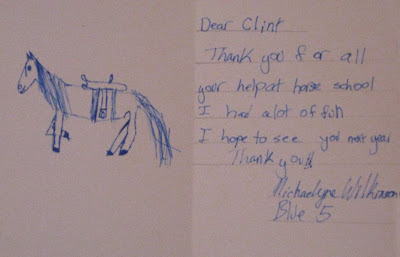 Dear Clint
Thank you for all
your help at horse school
I had a lot of fun
I hope to see you next year
Thank you!!
Michaelyne Wilkinson
Blue 5